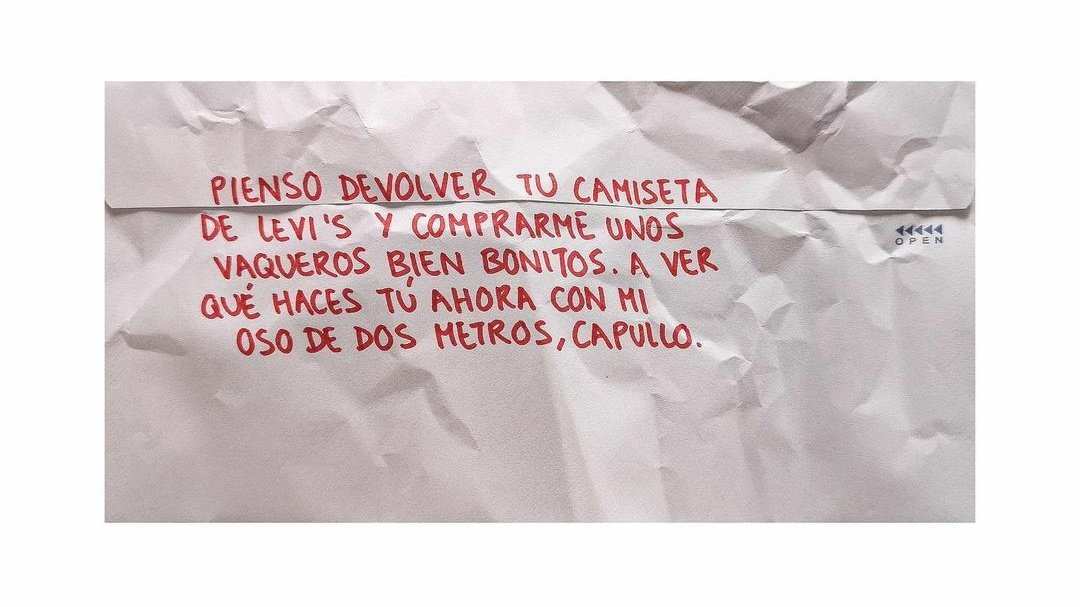 PIENSO DEVOLVER TU CAMISETA
DE LEVI'S Y COMPRARME UNOS
VAQUEROS BIEN BONITOS. A VER
QUÉ HACES TÚ AHORA CON MI
OSO DE DOS METROS, CAPULLO.
OPEN